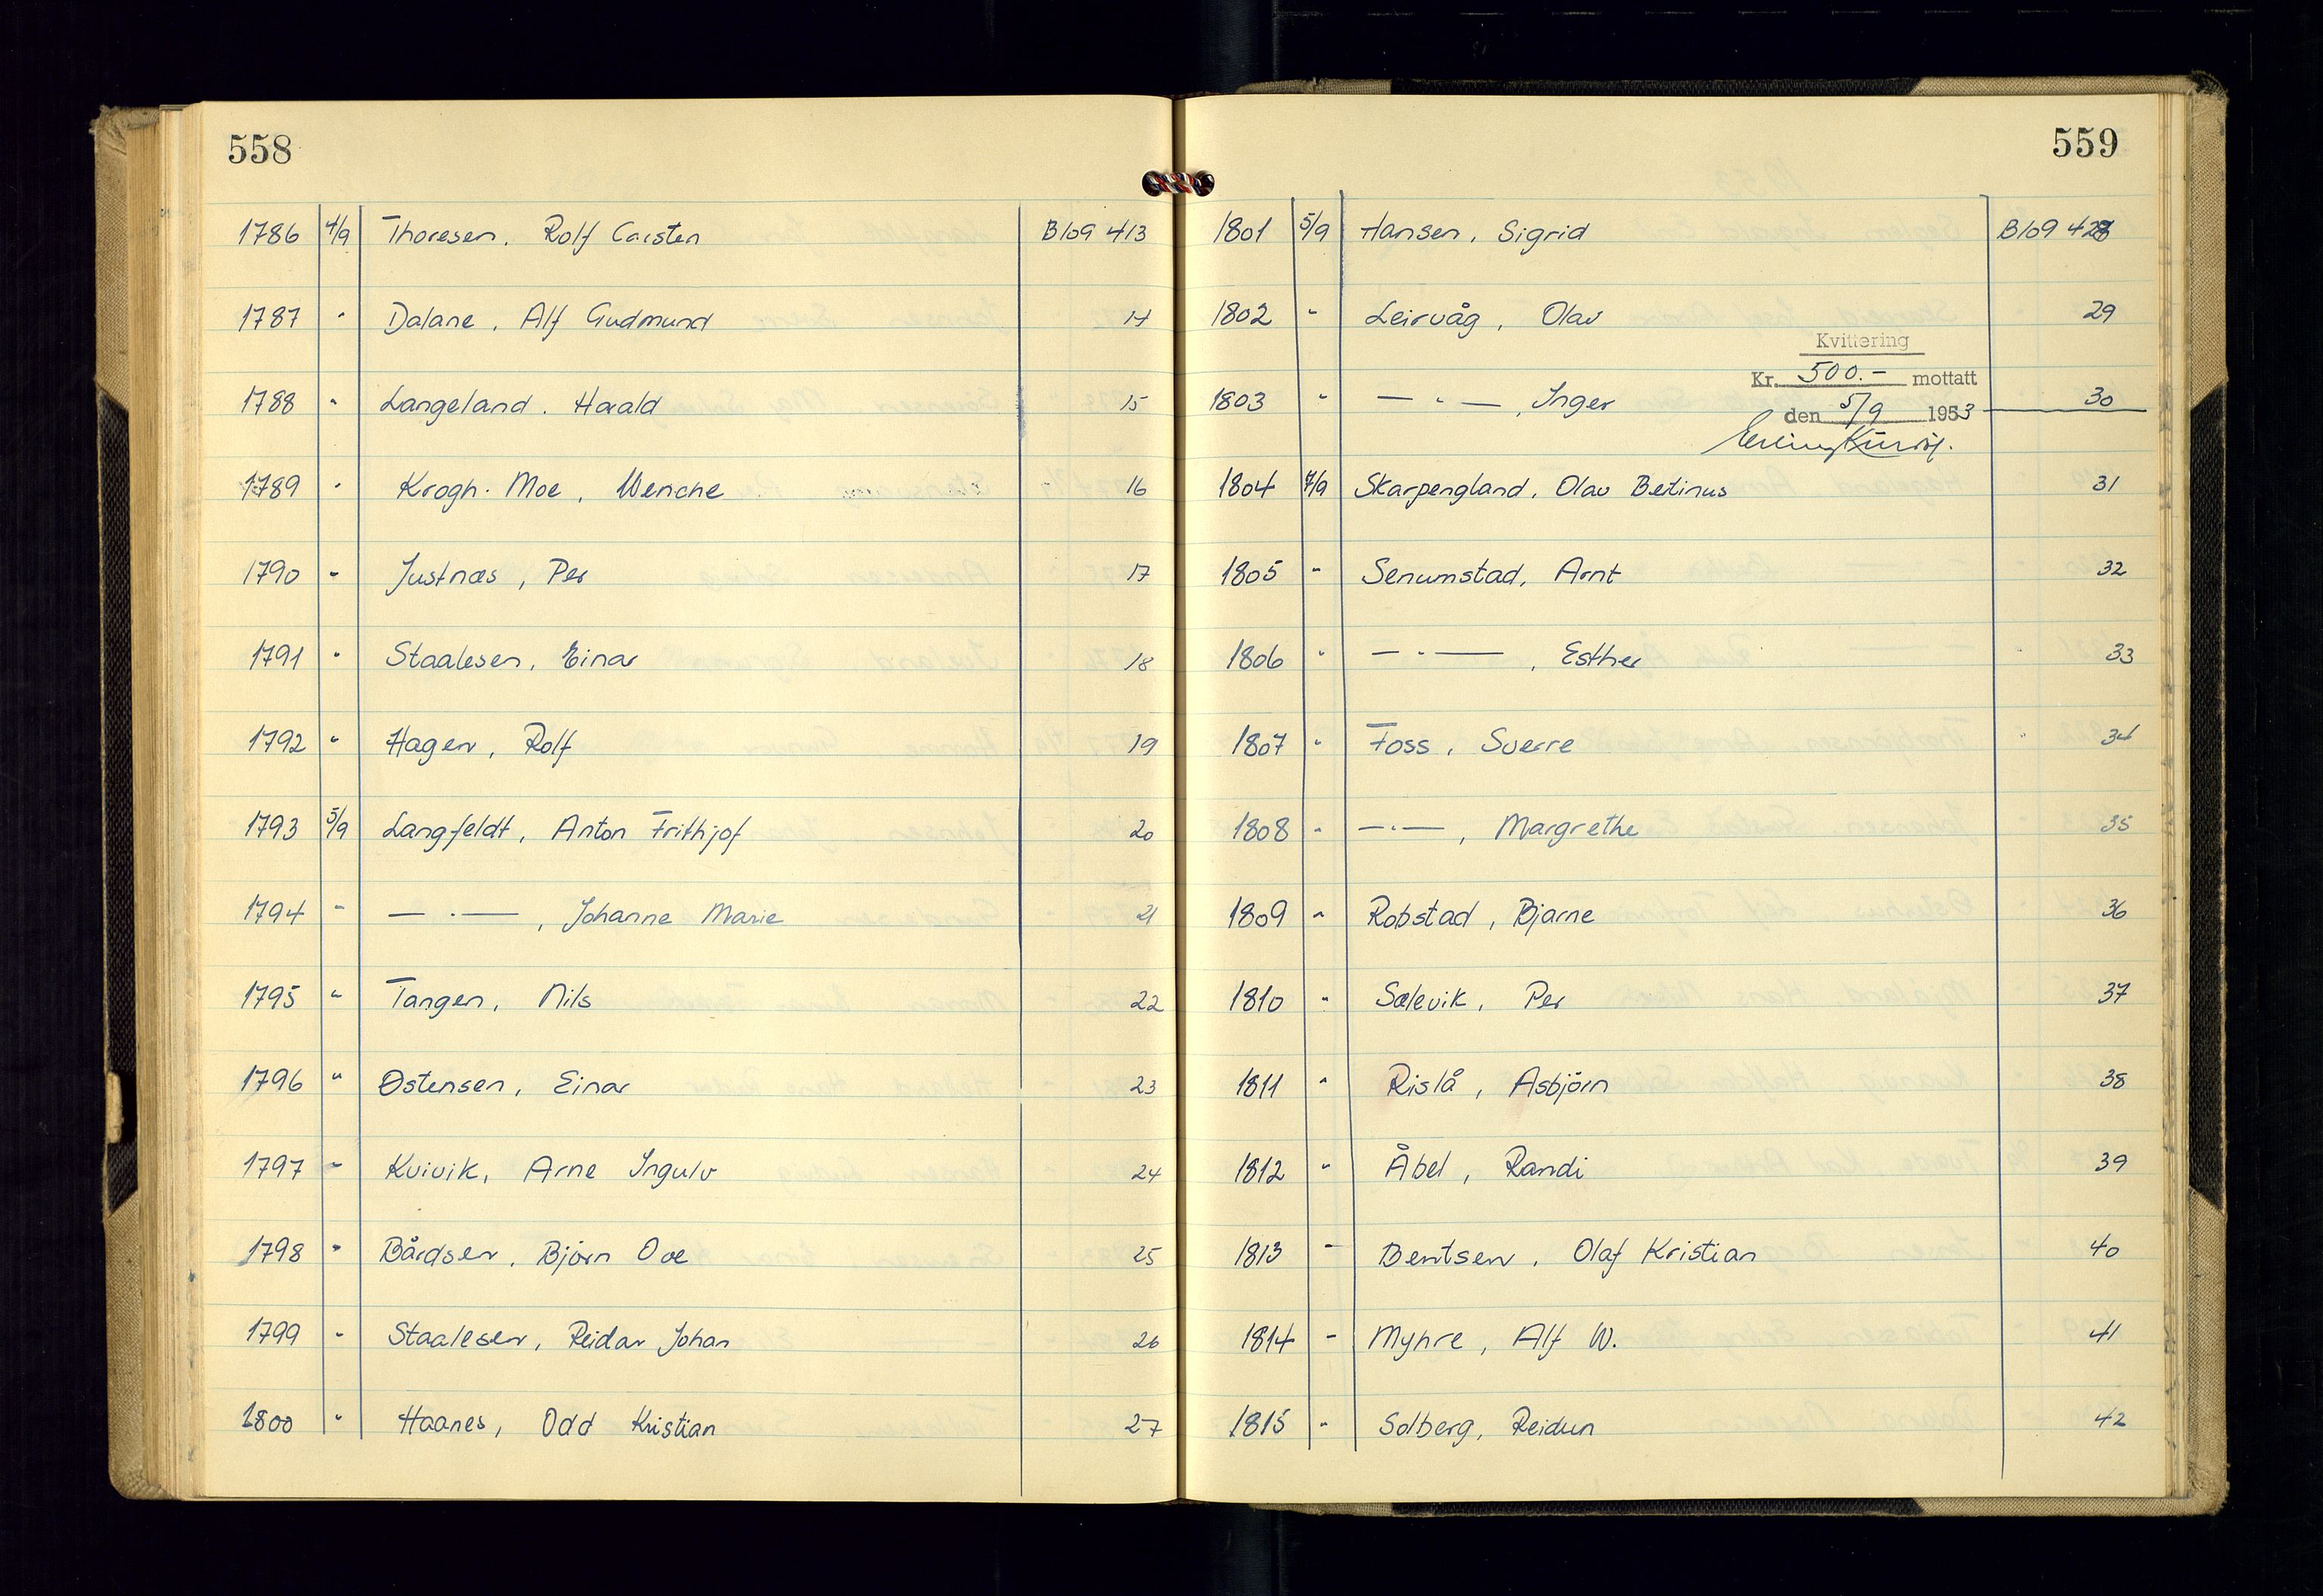 558
1786 4/9 Thoresen, Rolf Carsten B109 413
1787 " Dalane, Alf Gudmund 14
1788 " Langeland, Harald 15
1789 " Krogh-Moe, Wenche 16
1790 " Justnæs, Per 17
1791 " Staalesen, Einar 18
1792 " Hagen, Rolf 19
1793 5/9 Langfeldt, Anton Frithjof 20
1794 " — " —, Johanne Marie 21
1795 " Tangen, Nils 22
1796 " Østensen, Einar 23
1797 " Kvivik, Arne Ingulv 24
1798 " Bårdsen, Bjørn Ove 25
1799 " Staalesen, Reidar Johan 26
1800 " Haanes, Odd Kristian 27
559
1801 5/9 Hansen, Sigrid B109 428
1802 " Leirvåg, Olav 29
Kvittering
Kr. 500.- mottatt
1803 " — " —, Inger 30
den 5/9 1953
1804 7/9 Skarpengland, Olav Bertinus 31
1805 " Senumstad, Arnt 32
1806 " — " —, Esther 33
1807 " Foss, Sverre 34
1808 " — " —, Margrethe 35
1809 " Robstad, Bjarne 36
1810 " Sælevik, Per 37
1811 " Rislå, Asbjörn 38
1812 " Åbel, Randi 39
1813 " Bentsen, Olaf Kristian 40
1814 " Myhre, Alf W. 41
1815 " Solberg, Reidun 42